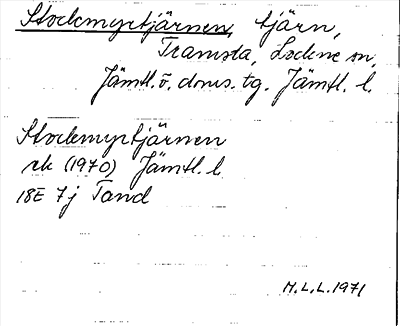 Stockmyrtjärnen, tjärn,
Tramsta, Lockne sn,
Jämtl. ö. doms. tg. Jämtl. l.
Stockmyrtjärnen
rk (1970) Jämtl. l.
18E 7j Tand
M.L.L. 1971